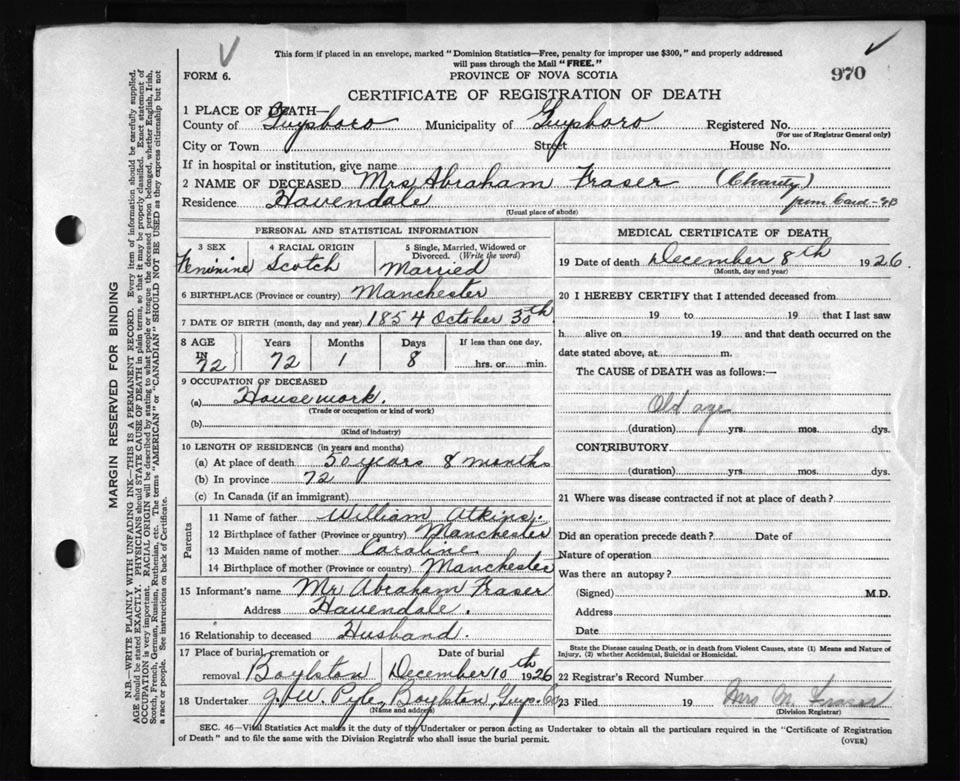 This form if placed in an envelope, marked "Dominion Statistics—Free, penalty for improper use $300," and properly addressed
will pass through the Mail "FREE."
FORM 6.
PROVINCE OF NOVA SCOTIA
970
CERTIFICATE OF REGISTRATION OF DEATH
1 PLACE OF DEATH—
County of Guysboro Municipality of Guysboro Registered No.
(For use of Registrar General only)
City or Town Street House No.
If in hospital or institution, give name
2 NAME OF DECEASED Mrs Abraham Fraser (Charity)
from Card - GB
Residence Havendale
(Usual place of abode)
PERSONAL AND STATISTICAL INFORMATION
3 SEX 4 RACIAL ORIGIN 5 Single, Married, Widowed or Divorced. (Write the word)
Feminine Scotch Married
6 BIRTHPLACE (Province or country) Manchester
7 DATE OF BIRTH (month, day and year) 1854 October 30th
8 AGE Years Months Days If less than one day,
IN 72 72 1 8 hrs. or min.
9 OCCUPATION OF DECEASED
(a) Housework.
(Trade or occupation or kind of work)
(b)
(Kind of industry)
10 LENGTH OF RESIDENCE (in years and months)
(a) At place of death 50 years 8 months
(b) In province 72
(c) In Canada (if an immigrant)
Parents
11 Name of father William Atkins.
12 Birthplace of father (Province or country) Manchester
13 Maiden name of mother Caroline
14 Birthplace of mother (Province or country) Manchester
15 Informant's name Mr Abraham Fraser
Address Havendale.
16 Relationship to deceased Husband.
17 Place of burial, cremation or removal Boylston Date of burial December 10th 1926
18 Undertaker J. W. Pyle, Boylston, Guys. Co
(Name and address)
MEDICAL CERTIFICATE OF DEATH
19 Date of death December 8th 1926.
(Month, day and year)
20 I HEREBY CERTIFY that I attended deceased from
19 to 19 that I last saw
h alive on 19 and that death occurred on the
date stated above, at m.
The CAUSE of DEATH was as follows:—
Old age
(duration) yrs. mos. dys.
CONTRIBUTORY.
(duration) yrs. mos. dys.
21 Where was disease contracted if not at place of death?
Did an operation precede death? Date of
Nature of operation
Was there an autopsy?
(Signed) M.D.
Address
Date
State the Disease causing Death, or in death from Violent Causes, state (1) Means and Nature of
Injury, (2) whether Accidental, Suicidal or Homicidal.
22 Registrar's Record Number
23 Filed 19 Mrs M.
(Division Registrar)
SEC. 46—Vital Statistics Act makes it the duty of the Undertaker or person acting as Undertaker to obtain all the particulars required in the "Certificate of Registration
of Death" and to file the same with the Division Registrar who shall issue the burial permit.
(OVER)
MARGIN RESERVED FOR BINDING
N.B.—WRITE PLAINLY WITH UNFADING INK—THIS IS A PERMANENT RECORD. Every item of information should be carefully supplied.
AGE should be stated EXACTLY. PHYSICIANS should STATE CAUSE OF DEATH in plain terms, so that it may be properly classified. Exact statement of
OCCUPATION is very important. RACIAL ORIGIN will be described by stating to what people or tongue the deceased person belonged, whether English, Irish,
Scotch, French, German, Russian, Ruthenian, etc. The terms "AMERICAN" or "CANADIAN" SHOULD NOT BE USED as they express citizenship but not
a race or people. See instructions on back of Certificate.